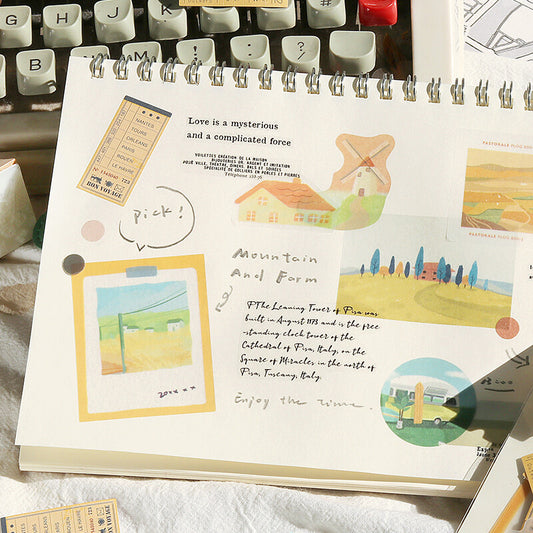 B
N
M
?
/
H
Love is a mysterious
and a complicated force
VOILETTES CRÉATION DE LA MAISON
BIJOUTERIES OR, ARGENT ET IMITATION
POUR VILLE, THEATRE, DINERS, BALS ET SOIRÉES
SPÉCIALITÉ DE COLLIERS EN PERLES ET PIERRES
NANTES
TOURS
ORLEANS
PARIS
ROUEN
LE HAVRE
Nº 1145040
723
BON VOYAGE
pick!
PASTORALE VLOG
PASTORALE VLOG
Mountain
And Farm
PThe Leaning Tower of Pisa was
built in August 1173 and is the free
-standing clock tower of the
Cathedral of Pisa, Italy, on the
Square of Miracles in the north of
Pisa, Tuscany, Italy.
20xx x x
Enjoy the time.
ORLEANS
PARIS
ROUEN
LE HAVRE
BON VOYAGE
723